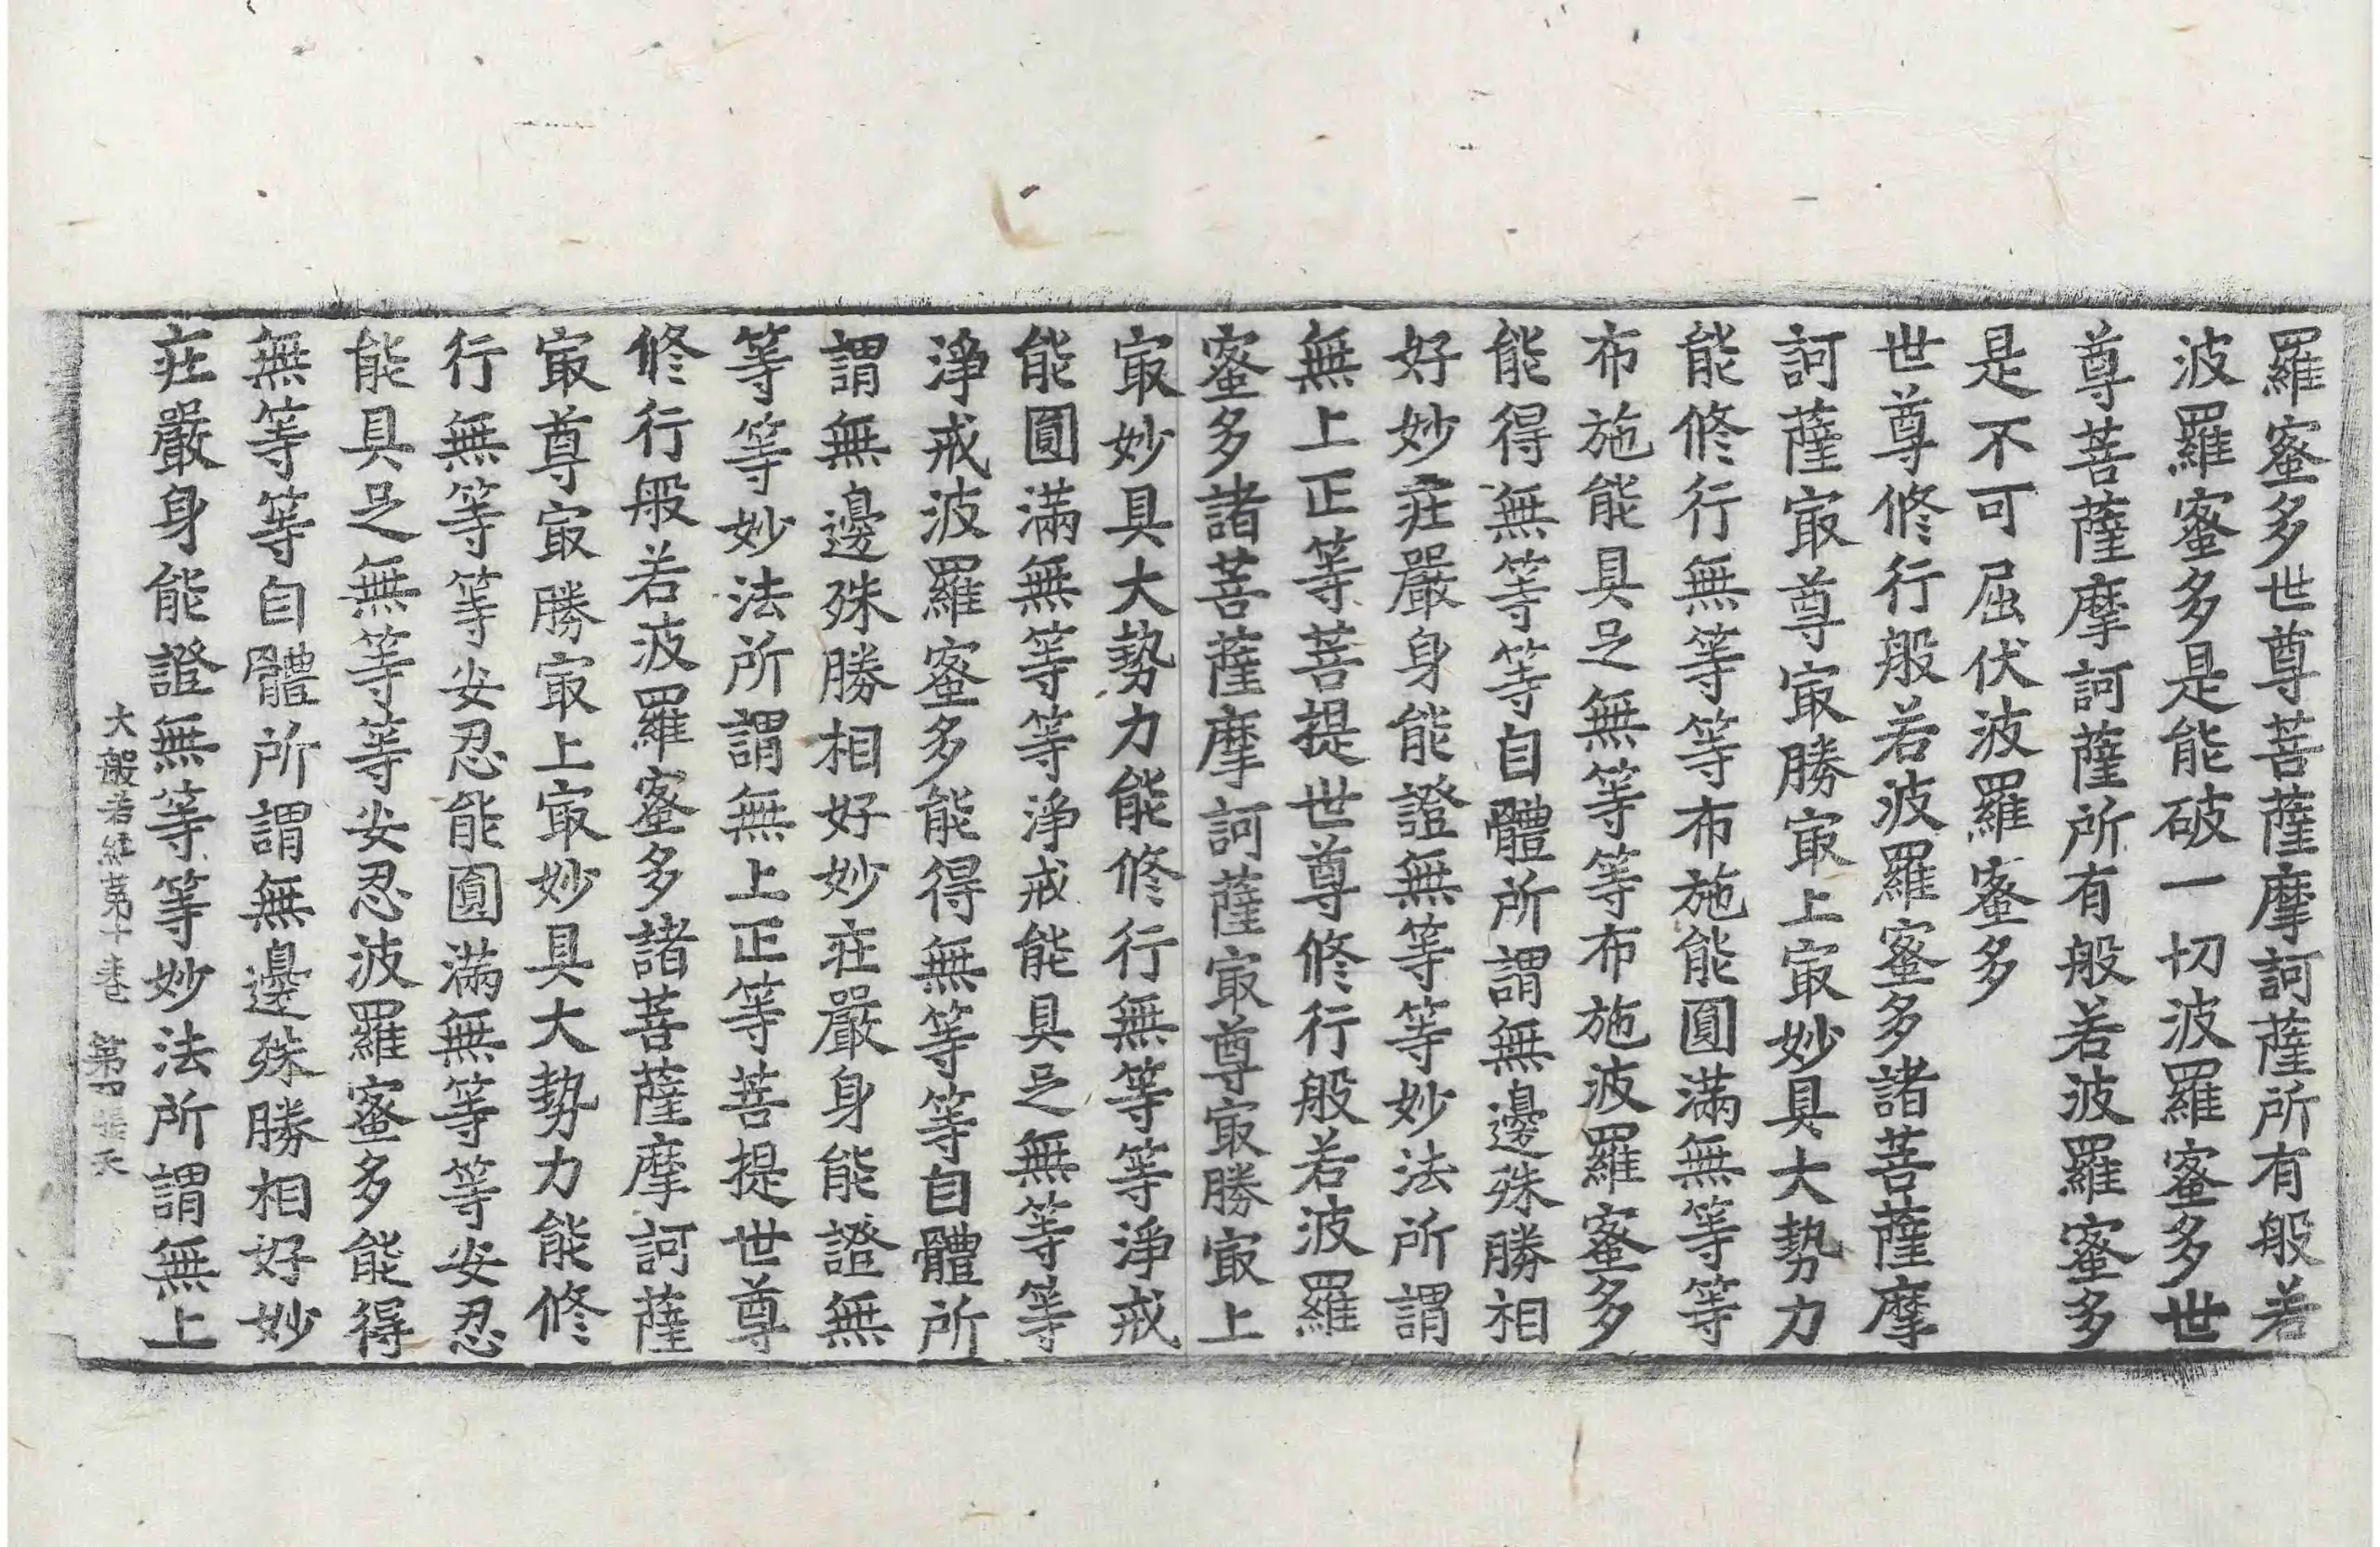 羅蜜多世尊菩薩摩訶薩所有般若
波羅蜜多是能破一切波羅蜜多世
尊菩薩摩訶薩所有般若波羅蜜多
是不可屈伏波羅蜜多
世尊修行般若波羅蜜多諸菩薩摩
訶薩㝡尊㝡勝㝡上㝡妙具大勢力
能修行無等等布施能圓滿無等等
布施能具足無等等布施波羅蜜多
能得無等等自體所謂無邊殊勝相
好妙莊嚴身能證無等等妙法所謂
無上正等菩提世尊修行般若波羅
蜜多諸菩薩摩訶薩㝡尊㝡勝㝡上
㝡妙具大勢力能修行無等等淨戒
能圓滿無等等淨戒能具足無等等
淨戒波羅蜜多能得無等等自體所
謂無邊殊勝相好妙莊嚴身能證無
等等妙法所謂無上正等菩提世尊
修行般若波羅蜜多諸菩薩摩訶薩
㝡尊㝡勝㝡上㝡妙具大勢力能修
行無等等安忍能圓滿無等等安忍
能具足無等等安忍波羅蜜多能得
無等等自體所謂無邊殊勝相好妙
莊嚴身能證無等等妙法所謂無上
大般若經第十卷 第四張 天